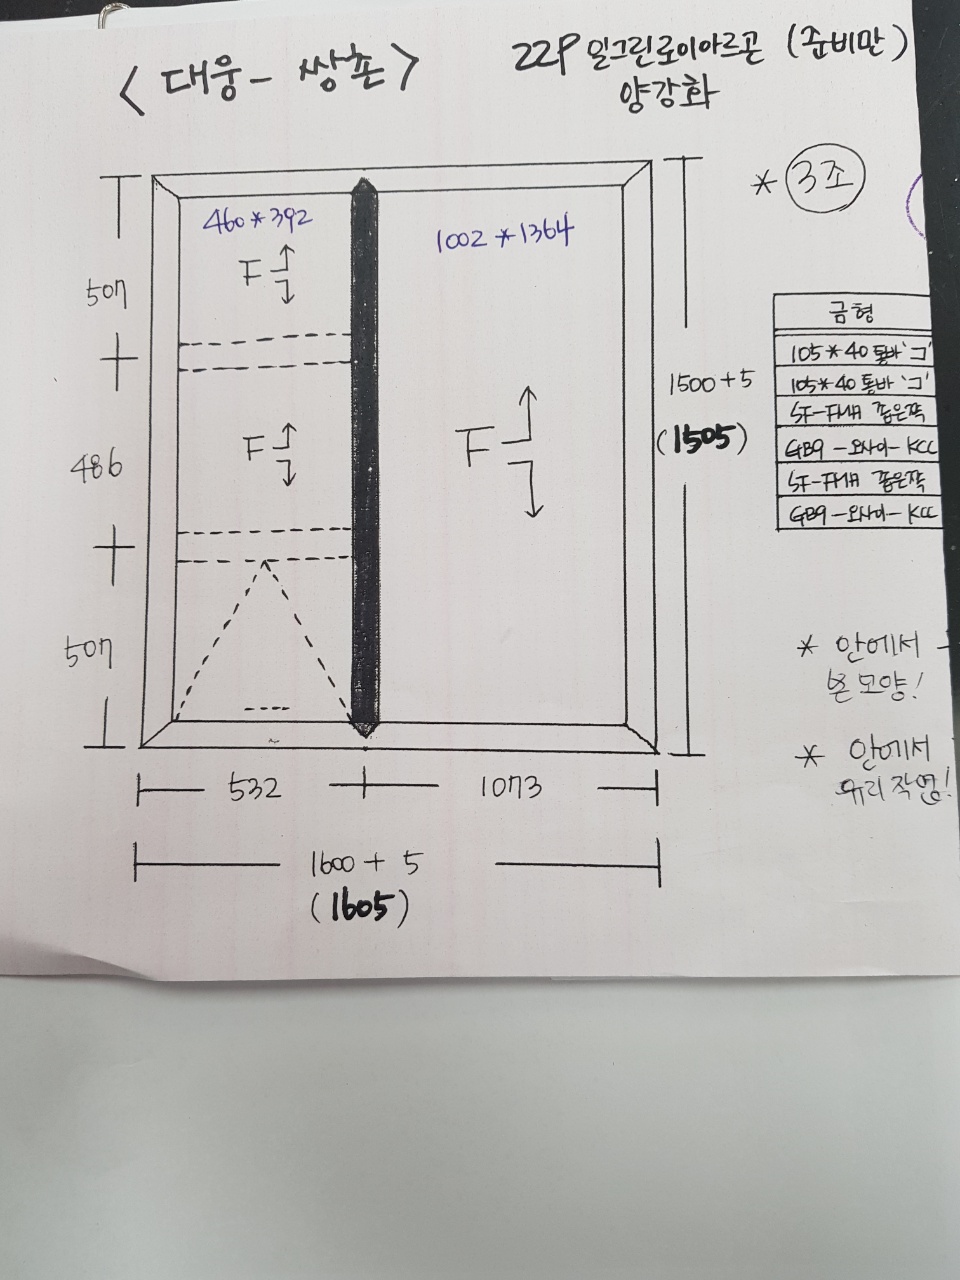 <대웅- 쌍촌>
22P 일그린로이아르곤 (준비만)
양강화
* 3조
460*392
1002*1364
F
507
F
486
F
507
1500+5
(1505)
금형
105*40 통바 'ㄱ'
105*40 통바 'ㄱ'
좁은쪽
GB9 - KCC
좁은쪽
GB9 - KCC
* 안에서
본 모양!
* 안에서
유리작업!
532
1073
1600+5
(1605)